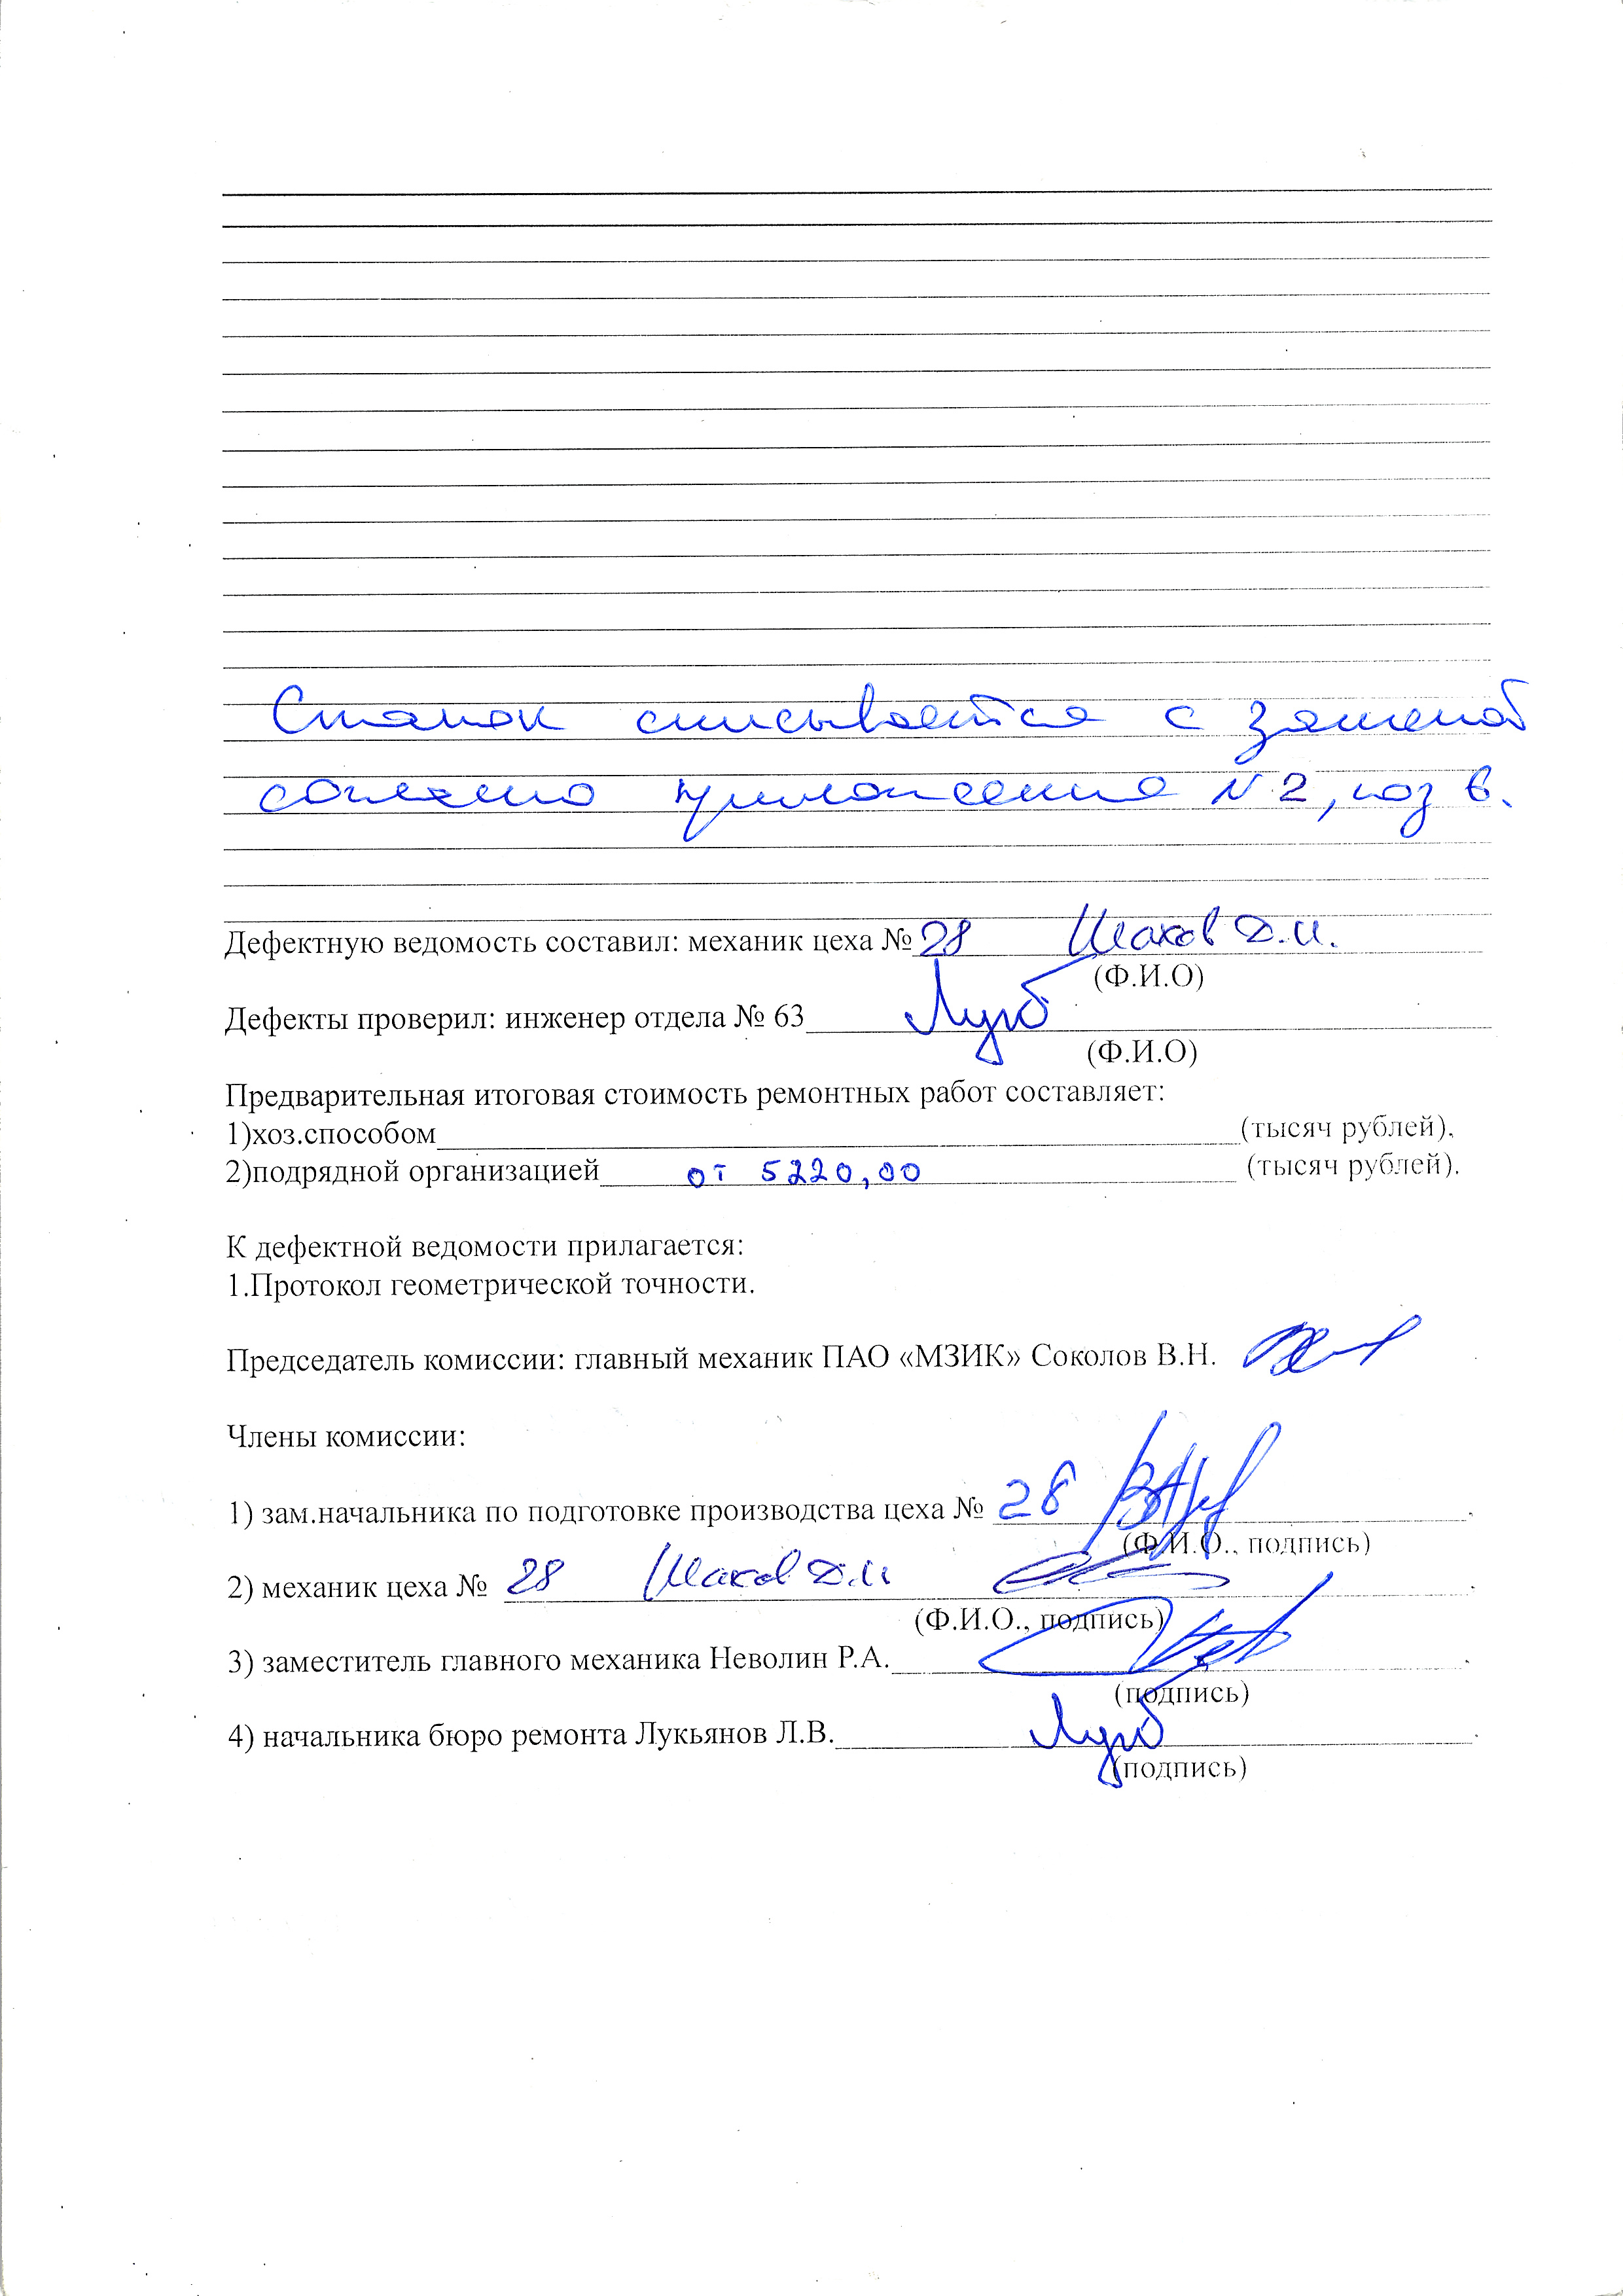 Станок списывается с заменой
согласно приложения N 2, поз 6.
Дефектную ведомость составил: механик цеха № 28 Шахов Д.И.
(Ф.И.О)
Дефекты проверил: инженер отдела № 63
(Ф.И.О)
Предварительная итоговая стоимость ремонтных работ составляет:
1)хоз.способом (тысяч рублей).
2)подрядной организацией от 5220,00 (тысяч рублей).
К дефектной ведомости прилагается:
1.Протокол геометрической точности.
Председатель комиссии: главный механик ПАО «МЗИК» Соколов В.Н.
Члены комиссии:
1) зам.начальника по подготовке производства цеха № 28
(Ф.И.О., подпись)
2) механик цеха № 28 Шахов Д.И
(Ф.И.О., подпись)
3) заместитель главного механика Неволин Р.А.
(подпись)
4) начальника бюро ремонта Лукьянов Л.В.
(подпись)